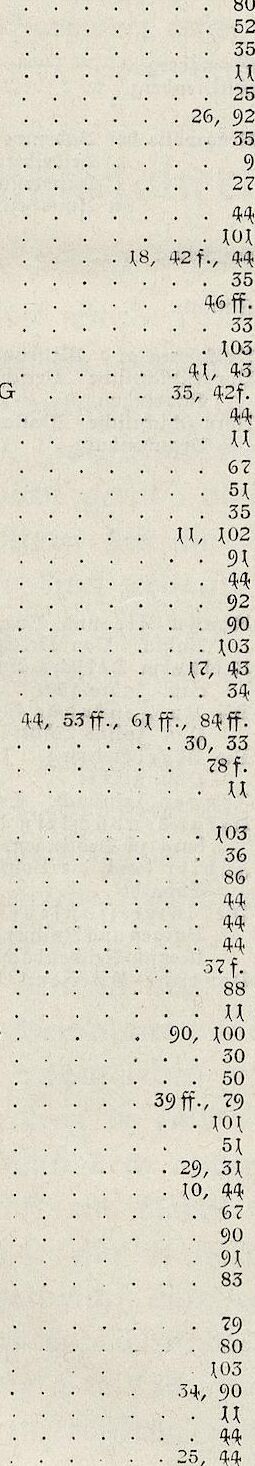 . . . . . . . 80
. . . . . . . 52
. . . . . . . 35
. . . . . . . 11
. . . . . . . 25
. . . . . . 26, 92
. . . . . . . 35
. . . . . . . 9
. . . . . . . 27
. . . . . . . 44
. . . . . . . 101
. . . . 18, 42 f., 44
. . . . . . . 35
. . . . . . 46 ff.
. . . . . . . 33
. . . . . . . 103
. . . . . . 41, 43
G . . . . 35, 42f.
. . . . . . . 44
. . . . . . . 11
. . . . . . . 67
. . . . . . . 51
. . . . . . . 35
. . . . . . 11, 102
. . . . . . . 91
. . . . . . . 44
. . . . . . . 92
. . . . . . . 90
. . . . . . . 103
. . . . . . 17, 43
. . . . . . . 34
44, 53 ff., 61 ff., 84 ff.
. . . . . . 30, 33
. . . . . . 78 f.
. . . . . . . 11
. . . . . . . 103
. . . . . . . 36
. . . . . . . 86
. . . . . . . 44
. . . . . . . 44
. . . . . . . 44
. . . . . . 37 f.
. . . . . . . 88
. . . . . . . 11
. . . . 90, 100
. . . . . . . 30
. . . . . . . 50
. . . . . 39 ff., 79
. . . . . . . 101
. . . . . . . 51
. . . . . . 29, 31
. . . . . . 10, 44
. . . . . . . 67
. . . . . . . 90
. . . . . . . 91
. . . . . . . 83
. . . . . . . 79
. . . . . . . 80
. . . . . . . 103
. . . . . . 34, 90
. . . . . . . 11
. . . . . . . 44
. . . . . . 25, 44